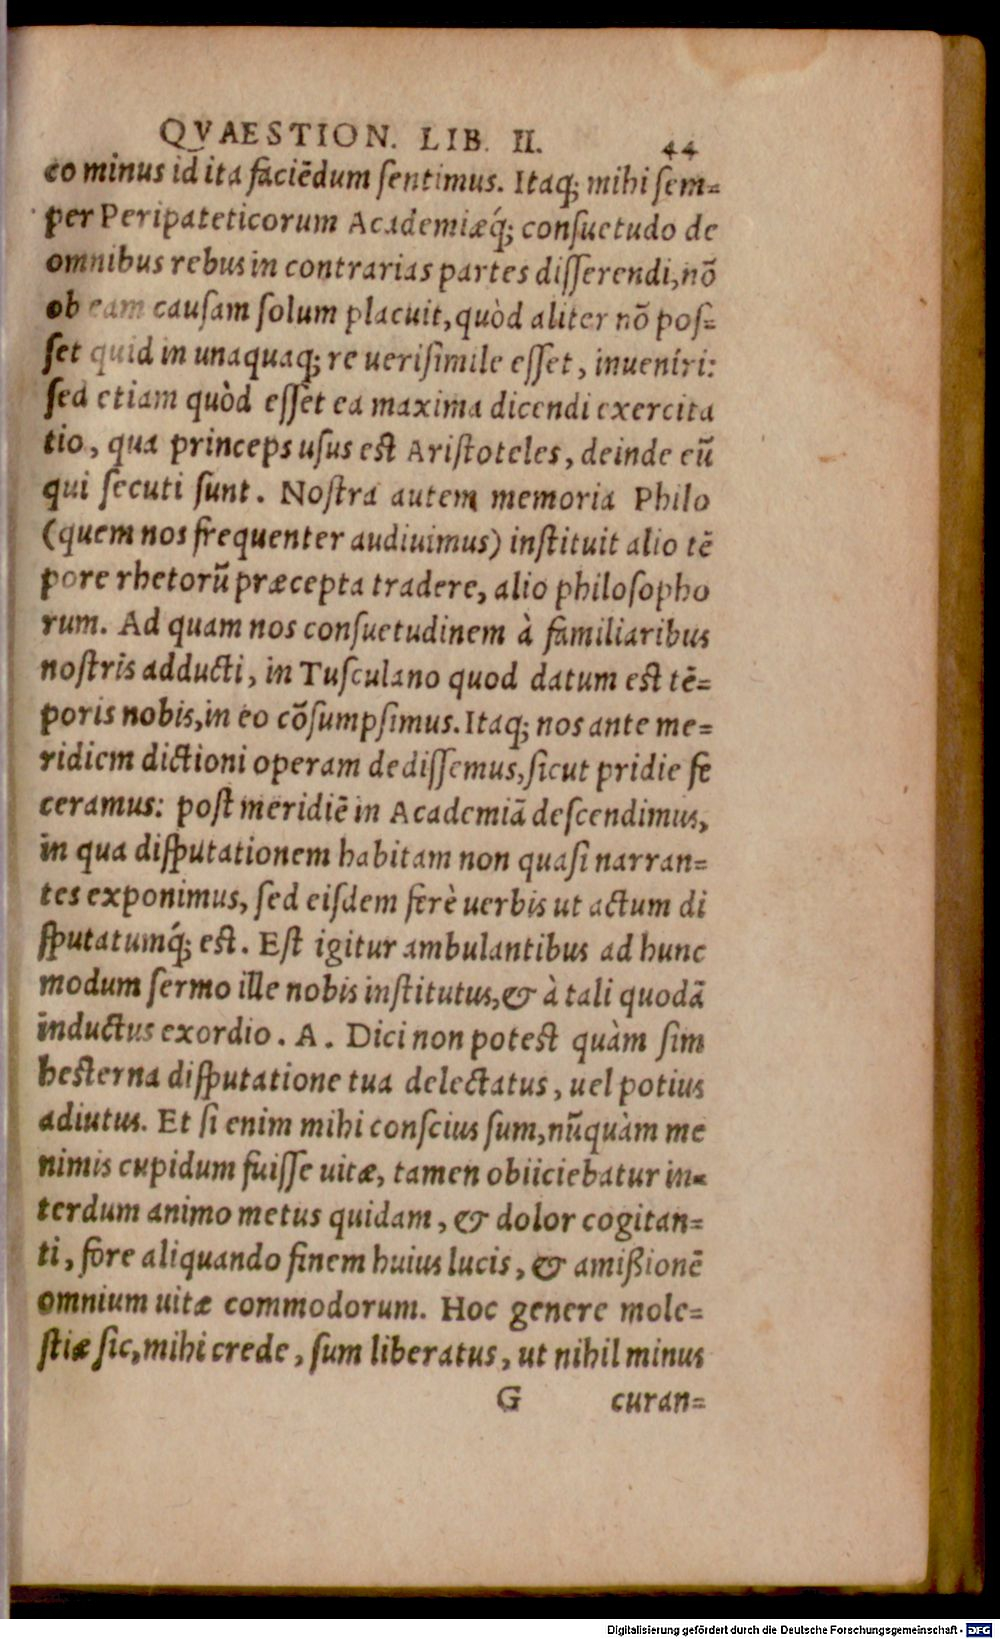 QVAESTION. LIB. II. 44
eo minus id ita faciēdum ſentimus. Itaq; mihi ſem=
per Peripateticorum Academiæq́; conſuetudo de
omnibus rebus in contrarias partes diſſerendi, nō
ob eam cauſam ſolum placuit, quòd aliter nō poſ=
ſet quid in unaquaq; re ueriſimile eſſet, inueniri:
ſed etiam quòd eſſet ea maxima dicendi exercita
tio, qua princeps uſus eſt Ariſtoteles, deinde eū
qui ſecuti ſunt. Noſtra autem memoria Philo
(quem nos frequenter audiuimus) inſtituit alio tē
pore rhetorū præcepta tradere, alio philoſopho
rum. Ad quam nos conſuetudinem à familiaribus
noſtris adducti, in Tuſculano quod datum eſt tē=
poris nobis, in eo cōſumpſimus. Itaq; nos ante me=
ridiem dictioni operam dediſſemus, ſicut pridie fe
ceramus: poſt meridiē in Academiā deſcendimus,
in qua diſputationem habitam non quaſi narran=
tes exponimus, ſed eiſdem ferè uerbis ut actum di
ſputatumq́; eſt. Eſt igitur ambulantibus ad hunc
modum ſermo ille nobis inſtitutus, & à tali quodā
inductus exordio. A. Dici non poteſt quàm ſim
heſterna diſputatione tua delectatus, uel potius
adiutus. Et ſi enim mihi conſcius ſum, nūquàm me
nimis cupidum fuiſſe uitæ, tamen obiiciebatur in=
terdum animo metus quidam, & dolor cogitan=
ti, fore aliquando finem huius lucis, & amißionē
omnium uitæ commodorum. Hoc genere mole=
ſtiæ ſic, mihi crede, ſum liberatus, ut nihil minus
G curan=
Digitalisierung gefördert durch die Deutsche Forschungsgemeinschaft - DFG